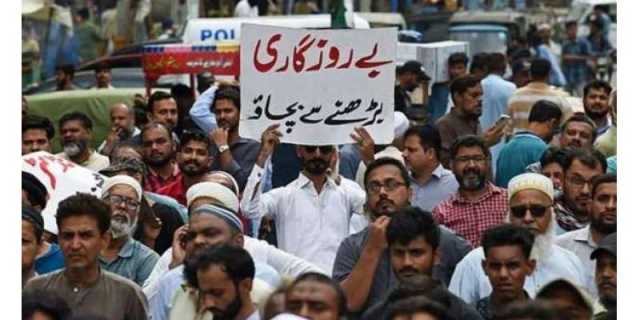 POLICE
بے روزگاری
بڑھنے سے بچاؤ